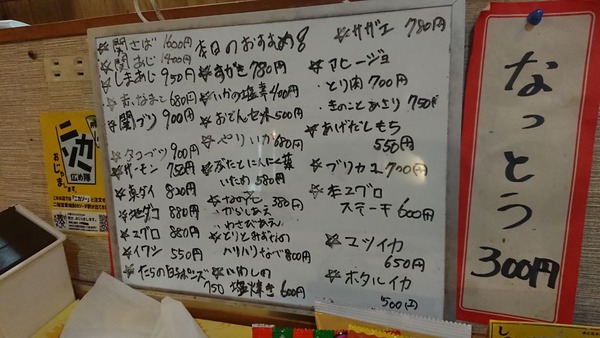 本日のおすすめ
☆関さば 1600円
☆関あじ 1400円
☆しまあじ 950円
☆赤なまこ 680円
☆関ブリ 900円
☆タコブツ 900円
☆サーモン 750円
☆真ダイ 820円
☆地ダコ 880円
☆マグロ 880円
☆イワシ 550円
☆たらの白子ポン酢
750
☆すがき 780円
☆いかの塩辛 400円
☆おでんセット 500円
☆ヤリいか 680円
☆ぶたとにんにく葉
いため 580円
☆なのはな 380円
・からしあえ
・わさびあえ
☆とりとみずなの
ハリハリなべ 800円
☆いわしの
塩焼き 600円
☆サザエ 780円
☆アヒージョ
・とり肉 700円
・きのことあさり 750円
☆あげだしもち
550円
☆ブリカマ 700円
☆本マグロ
ステーキ 600円
☆マツイカ
650円
☆ホタルイカ
500円
なっとう
300円
ニカソ
広め隊
おじゃまします。